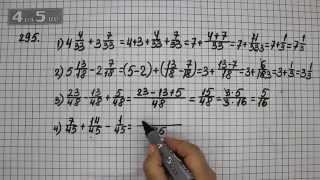 4 на 5.ru
295.
1) 4 4/33 + 3 7/33 = 4+3+ 4/33 + 7/33 = 7+ (4+7)/33 = 7+ 11/33 = 7+ 1/3 = 7 1/3
2) 5 13/18 - 2 7/18 = (5-2)+(13/18 - 7/18) = 3+ (13-7)/18 = 3+ 6/18 = 3+ 1/3 = 3 1/3
3) 23/48 - 13/48 + 5/48 = (23-13+5)/48 = 15/48 = (3·5)/(3·16) = 5/16
4) 7/45 + 14/45 - 1/45 =